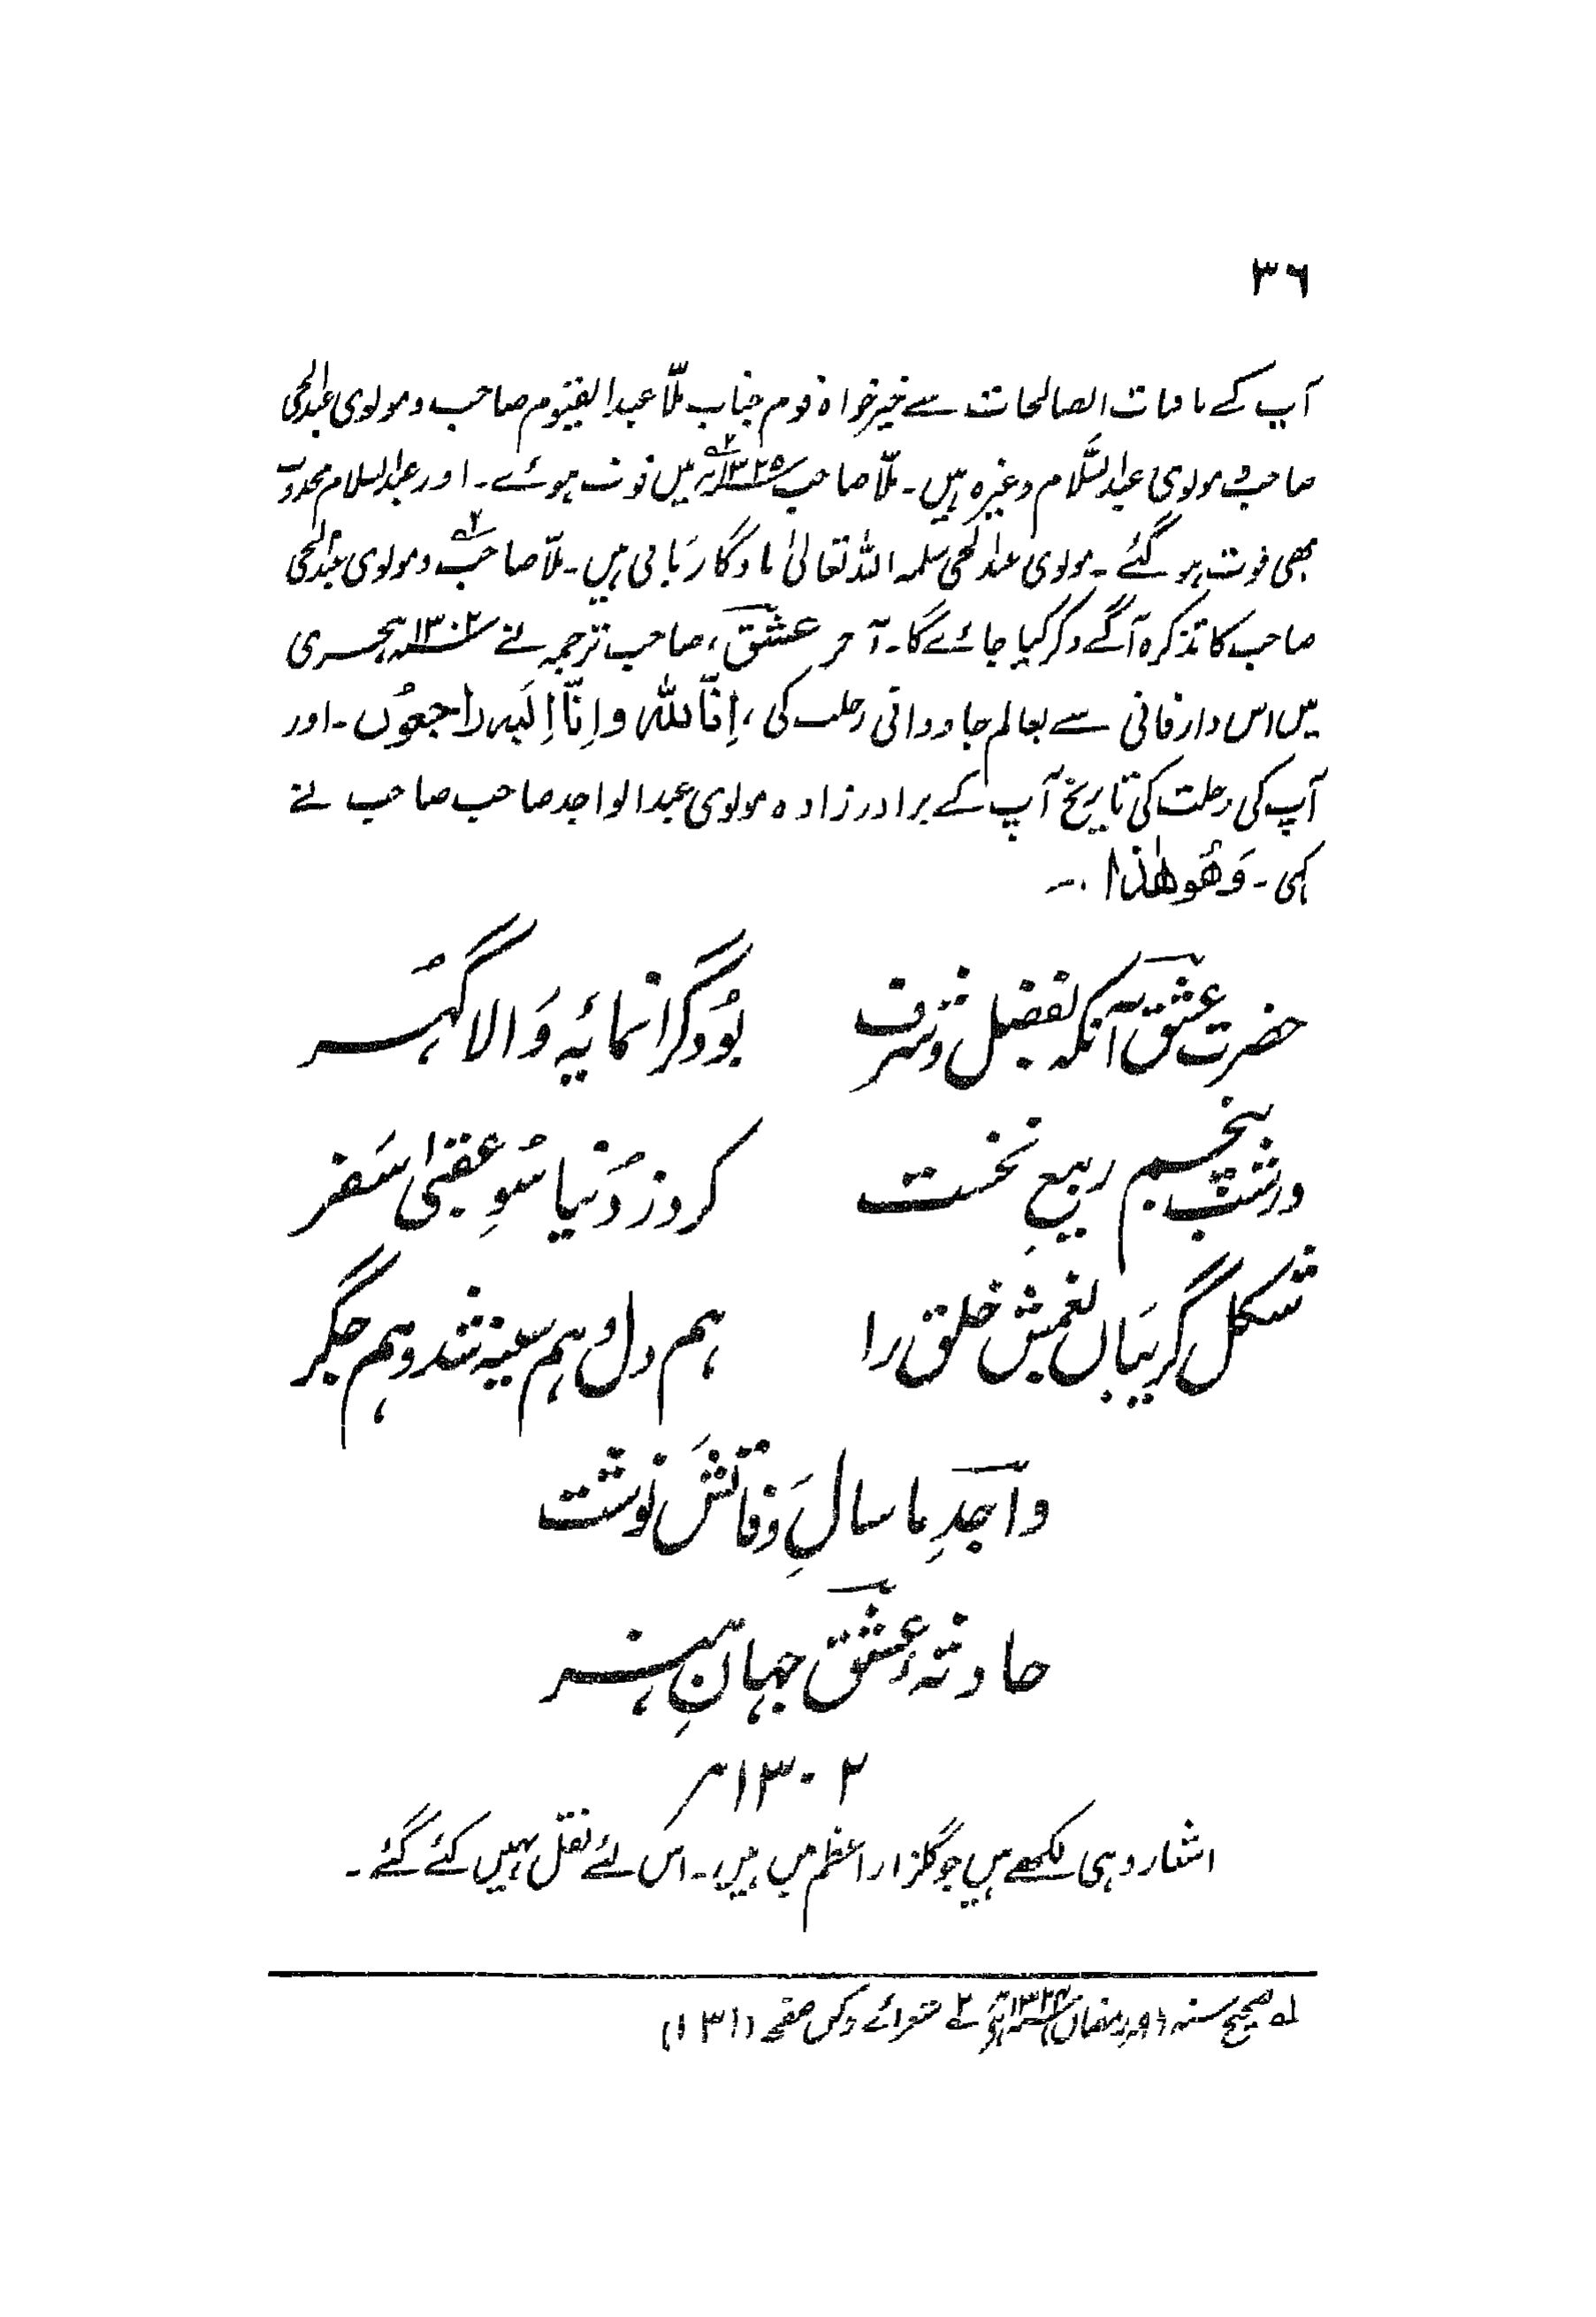 ۳۶
آپ کے باقیات الصالحات سے خیر خواہ قوم جناب ملّا عبد القیّوم صاحب و مولوی عبدالحی
صاحب و مولوی عبد السّلام وغیرہ ہیں۔ ملّا صاحب ۱۳۲۵ میں فوت ہوئے۔ اور عبد السلام مجذوب
بھی فوت ہو گئے۔ مولوی عبدالحی سلمہ اللہ تعالیٰ یادگار رَبّانی ہیں۔ ملّا صاحب و مولوی عبدالحی
صاحب کا تذکرہ آگے ذکر کیا جائے گا۔ آخر عشق، صاحب ترجمہ نے ۱۳۰۲ ہجری
میں اس دار فانی سے بعالم جاودانی رحلت کی، اِنَّا للہ و اِنَّا اِلَیہ راجعوُن۔ اور
آپ کی رحلت کی تاریخ آپ کے برادر زادہ مولوی عبدالواجد صاحب صاحب نے
کہی۔ وَھُو ھٰذا :۔
حضرت عشق آنکہ بفضل و شرف بوُد گرانمایَہ وَ الا گہُر
در شب پنجم ربیعِ نخست کرد ز دُنیا سُوِ عقبیٰ سَفر
شکل گریبَاں بغمش خلق را ہم دل و ہم سینہ شد و ہم جگر
واجدِ ما سالِ وَفاتَش نوشت
حادثہء عشق جہانِ ہنر
۱۳۰۲ھ
اشعار وہی لکھے ہیں جو گلزار اعظم میں ہیں۔ اس لئے نقل نہیں کئے گئے۔
لہ صحیح سنہ (۹ رمضان ۱۳۲۴ھ) ۲ے شعرائے دکن صفحہ (۱۳۱)